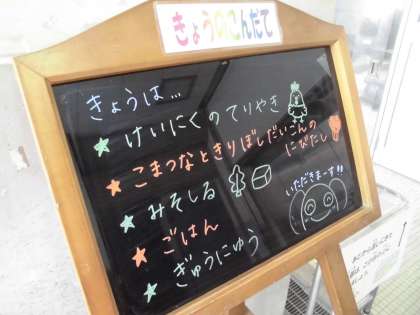 きょうのこんだて
きょうは...
★けいにくのてりやき
★こまつなときりぼしだいこんの
にびたし
★みそしる
★ごはん
★ぎゅうにゅう
いただきまーす!!